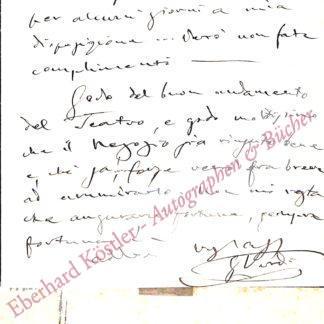 per alcuni giorni a mia
disposizione ... Però non fate
complimenti
Godo del buon andamento
del Teatro, e godo moltissimo
che il Negozio sia
e che forse verrò fra breve
ad ammirarlo. Non mi resta
che augurarvi fortuna, sempre
fortuna
G Verdi
Eberhard Köstler - Autographen & Bücher